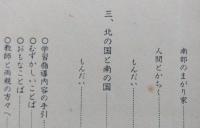 南部のまがり家………
人間とかちく………
もんだい………
三、北の国と南の国
もんだい………
○学習指導内容の手引…
○むずかしいことば…
○おもなことば………
○教師と両親の方々へ…